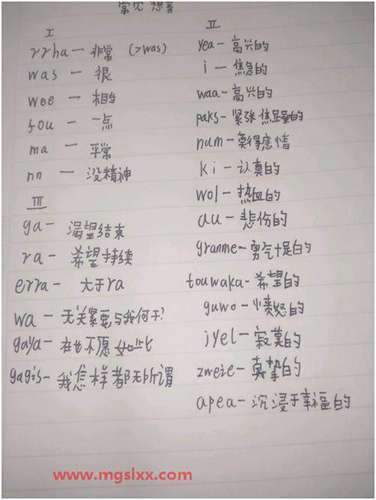 常见
I
rrha — 非常 (>was)
was — 很
wee — 相当
fou — 一点
ma — 平常
nn — 没精神
III
ga — 渴望结束
ra — 希望持续
erra — 大于ra
wa — 无关紧要与我何干?
gaya — 再也不愿如此
gagis — 我怎样都无所谓
II
yea - 高兴的
i - 焦急的
waa - 高兴的
paks - 紧张
num - 莫得感情
ki - 认真的
wol - 热血的
au - 悲伤的
granme - 勇气十足的
touwaka - 希望的
guwo - 愤怒的
jyel - 寂寞的
zweie - 真挚的
apea - 沉浸于幸福的
www.mgslxx.com